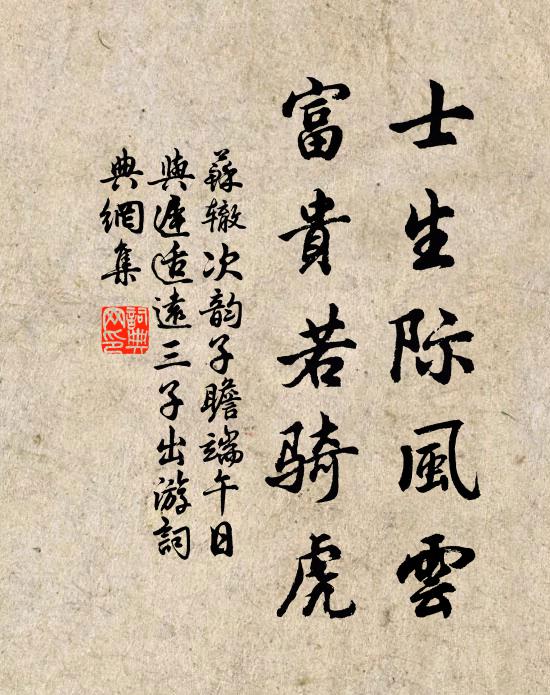 士生际風雲
富貴若骑虎
蘇辙次韵子瞻端午日
與遲适遠三子出游詞
典網集
詞典网印